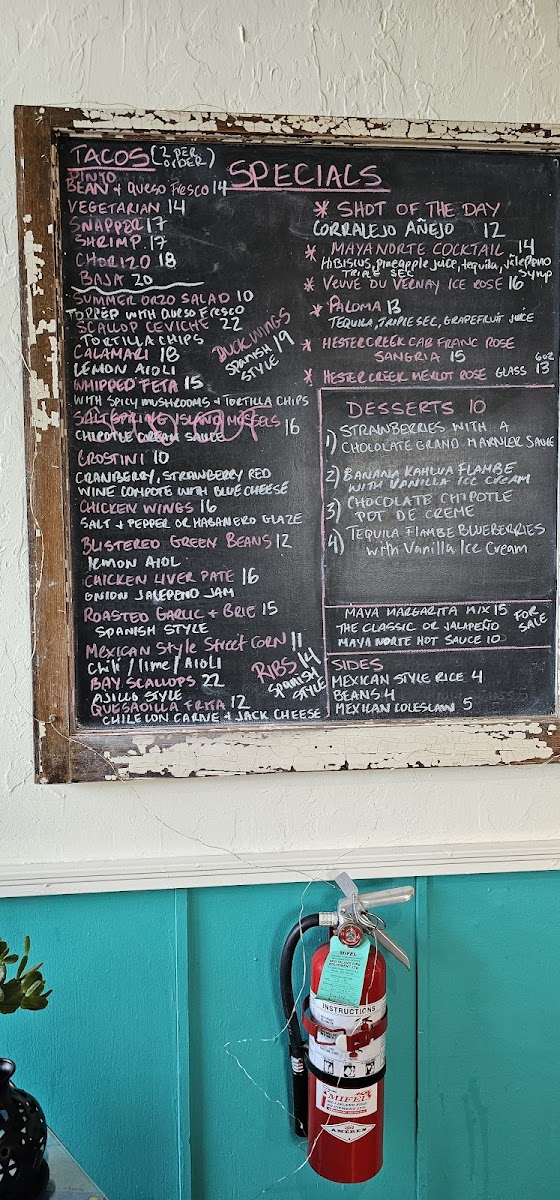 TACOS (2 PER ORDER)
PINTO
BEAN + QUESO FRESCO 14
VEGETARIAN 14
SNAPPER 17
SHRIMP 17
CHORIZO 18
BAJA 20
SUMMER ORZO SALAD 10
TOPPED WITH QUESO FRESCO
SCALLOP CEVICHE 22
TORTILLA CHIPS
CALAMARI 18
LEMON AIOLI
WHIPPED FETA 15
WITH SPICY MUSHROOMS + TORTILLA CHIPS
SALTSPRING ISLAND MUSSELS 16
CHIPOTLE CREAM SAUCE
CROSTINI 10
CRANBERRY, STRAWBERRY RED
WINE COMPOTE WITH BLUE CHEESE
CHICKEN WINGS 16
SALT + PEPPER OR HABANERO GLAZE
BLISTERED GREEN BEANS 12
LEMON AIOLI
CHICKEN LIVER PATE 16
ONION JALEPENO JAM
ROASTED GARLIC + BRIE 15
SPANISH STYLE
MEXICAN STYLE STREET CORN 11
CHILI / LIME / AIOLI
BAY SCALLOPS 22
AJILLO STYLE
QUESADILLA FRITA 12
CHILE CON CARNE + JACK CHEESE
DUCK WINGS 19
SPANISH
STYLE
RIBS 14
SPANISH
STYLE
SPECIALS
* SHOT OF THE DAY
CORRALEJO AÑEJO 12
* MAYA NORTE COCKTAIL 14
Hibiscus, pineapple juice, tequila, jaleppino
TRIPLE SEC syrup
* VEUVE DU VERNAY ICE ROSE 16
* PALOMA 13
TEQUILA, TRIPLE SEC, GRAPEFRUIT JUICE
* HESTER CREEK CAB FRANC ROSE
SANGRIA 15
* HESTER CREEK MERLOT ROSE GLASS 6oz 13
DESSERTS 10
1) STRAWBERRIES WITH A
CHOCOLATE GRAND MARNIER SAUCE
2) BANANA KAHLUA FLAMBE
WITH VANILLA ICE CREAM
3) CHOCOLATE CHIPOTLE
POT DE CREME
4) TEQUILA FLAMBE BLUEBERRIES
with Vanilla Ice Cream
MAYA MARGARITA MIX 15
THE CLASSIC OR JALAPEÑO
MAYA NORTE HOT SAUCE 10
FOR
SALE
SIDES
MEXICAN STYLE RICE 4
BEANS 4
MEXICAN COLESLAW 5
MIFEL
INSTRUCTIONS
MIFEL
AMEREX